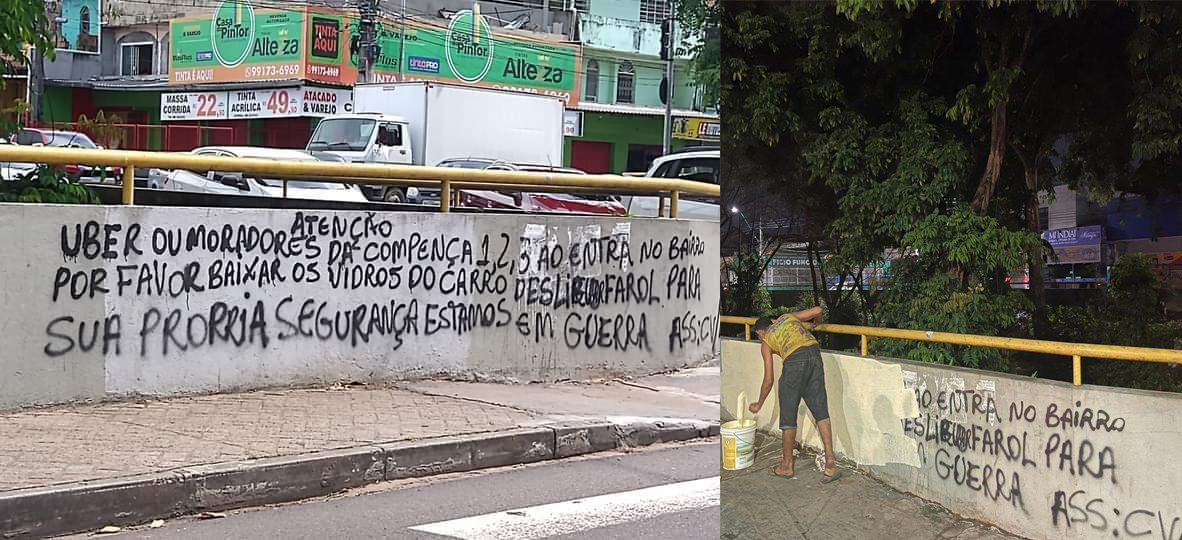 Casa do Pintor
REVENDA AUTORIZADA
Alteza
TINTA É AQUI!
99173-6969
TINTA AQUI
99173-6969
& VAREJO
Casa do Pintor
TINTAS
Alteza
MASSA CORRIDA 22
TINTA ACRÍLICA 49
ATACADO & VAREJO
ATENÇÃO
UBER OU MORADORES DA COMPENÇA 1,2,3 AO ENTRA NO BAIRRO
POR FAVOR BAIXAR OS VIDROS DO CARRO DESLIGUE FAROL PARA
SUA PROPRIA SEGURANÇA ESTAMOS EM GUERRA ASS:CV
MUNDIAL
AO ENTRA NO BAIRRO
FAROL PARA
GUERRA
ASS:CV